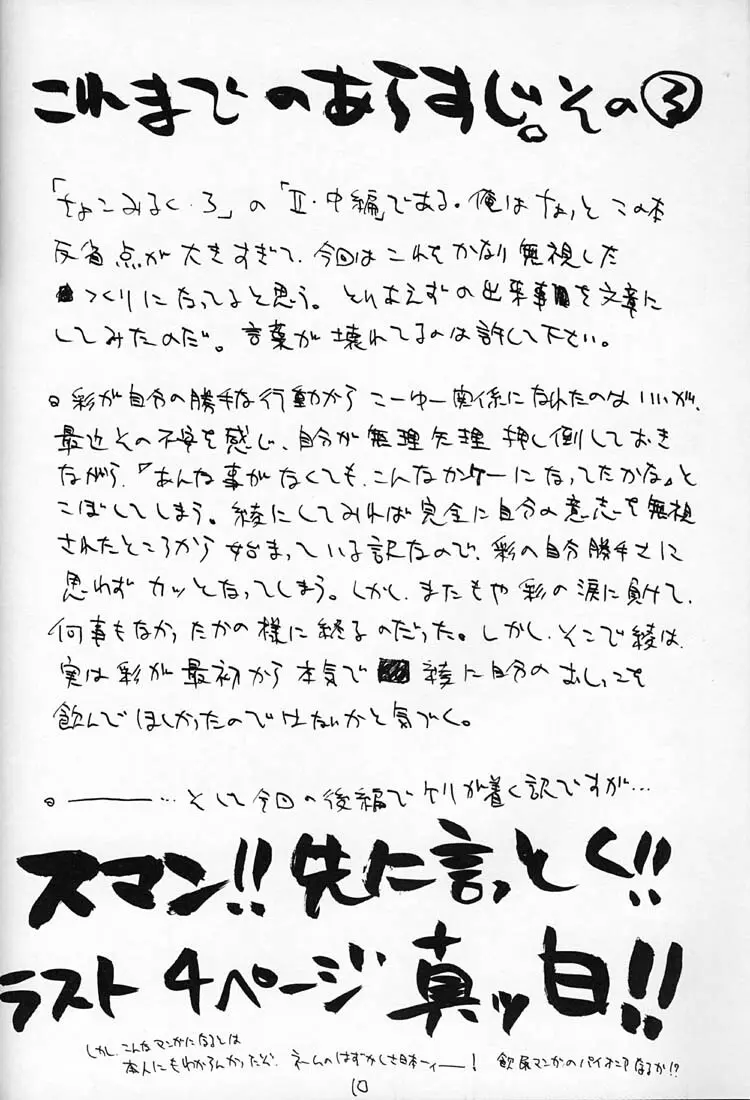 これまでのあらすじ。その③
「ちょこみるく・3」の「Ⅱ・中編」である。俺はちょっとこの本
反省点が大きすぎて、今回はこれをかなり無視した
つくりになってると思う。とりあえずの出来事を文章に
してみたのだ。言葉が壊れてるのは許して下さい。
◎彩が自分の勝手な行動からこーゆー関係になれたのはいいが、
最近その不安を感じ、自分が無理矢理押し倒しておき
ながら、『あんな事がなくても、こんなカンケーになってたかな』と
こぼしてしまう。綾にしてみれば完全に自分の意志を無視
されたところから始まっている訳なので、彩の自分勝手さに
思わずカッとなってしまう。しかし、またもや彩の涙に負けて、
何事もなかったかの様に終るのだった。しかし、そこで綾は、
実は彩が最初から本気で綾に自分のおしっこを
飲んでほしかったのではないかと気づく。
◎―――…そして今回の後編でケリが着く訳ですが…
スマン!!先に言っとく!!
ラスト4ページ真ッ白!!
しかし、こんなマンガになるとは
本人にもわからんかったぞ。ネームのはずかしさ日本一ィ――!飲尿マンガのパイオニアなるか!?
10